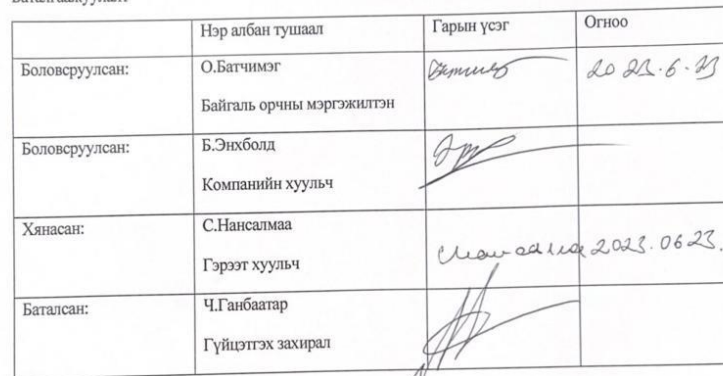 Нэр албан тушаал Гарын үсэг Огноо
Боловсруулсан: О.Батчимэг 2023.6.23
Байгаль орчны мэргэжилтэн
Боловсруулсан: Б.Энхболд
Компанийн хуульч
Хянасан: С.Нансалмаа
Гэрээт хуульч 2023.06.23.
Баталсан: Ч.Ганбаатар
Гүйцэтгэх захирал